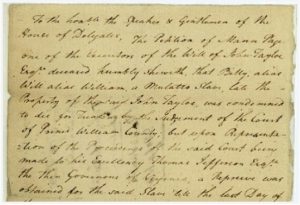 To the honble the Speaker & Gentlemen of the
House of Delegates. The Petition of Mann Page
one of the Executors of the Will of John Tayloe
Esqr. deceased humbly sheweth, that Billy, alias
Will alias William, a Mulatto Slave, late the
Property of the said John Tayloe, was condemned
to die for Treason by the Judgement of the Court
of Prince William County, but upon Representa-
tion of the Proceedings of the said Court being
made to his Excellency Thomas Jefferson Esqr.
the then Governour of Virginia, a Reprieve was
obtained for the said Slave 'till the last Day of